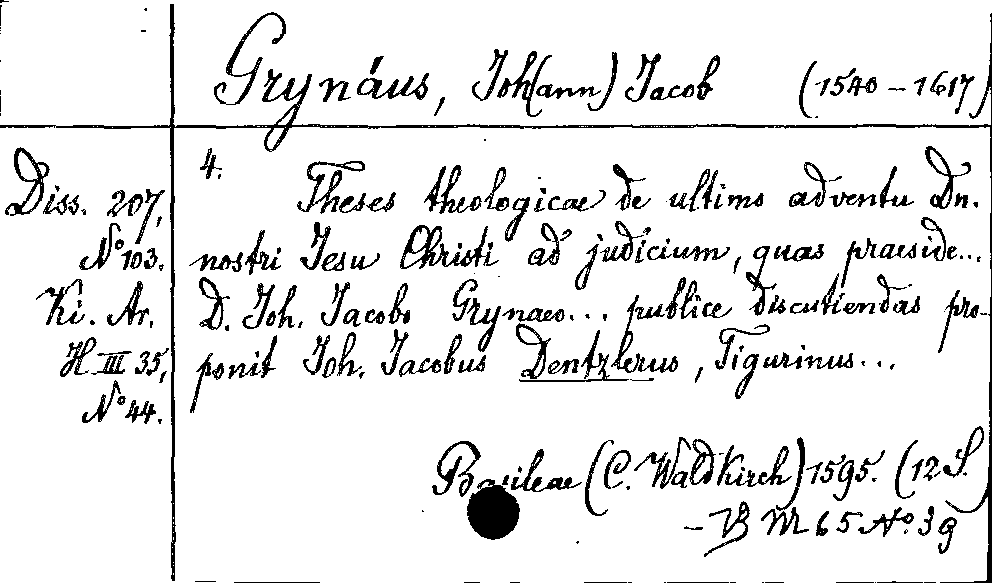 Grynäus, Joh(ann) Jacob (1540–1617)
Diss. 207,
N° 103.
Ki. Ar.
H III 35,
N° 44.
4.
Theses theologicae de ultimo adventu Dn.
nostri Jesu Christi ad judicium, quas praeside...
D. Joh. Jacobo Grynaeo... publice discutiendas pro-
ponit Joh. Jacobus Dentzlerus, Tigurinus...
Basileae (C. Waldkirch) 1595. (12 S.)
– VB M 65 N° 39